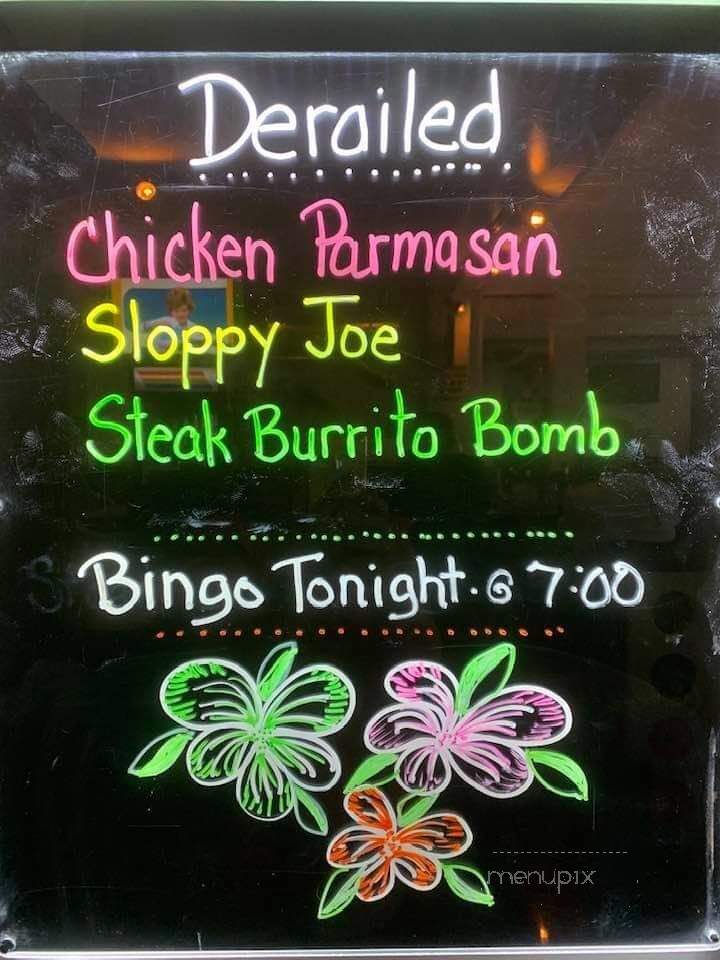 Derailed
Chicken Parmasan
Sloppy Joe
Steak Burrito Bomb
Bingo Tonight. @ 7:00
menupix